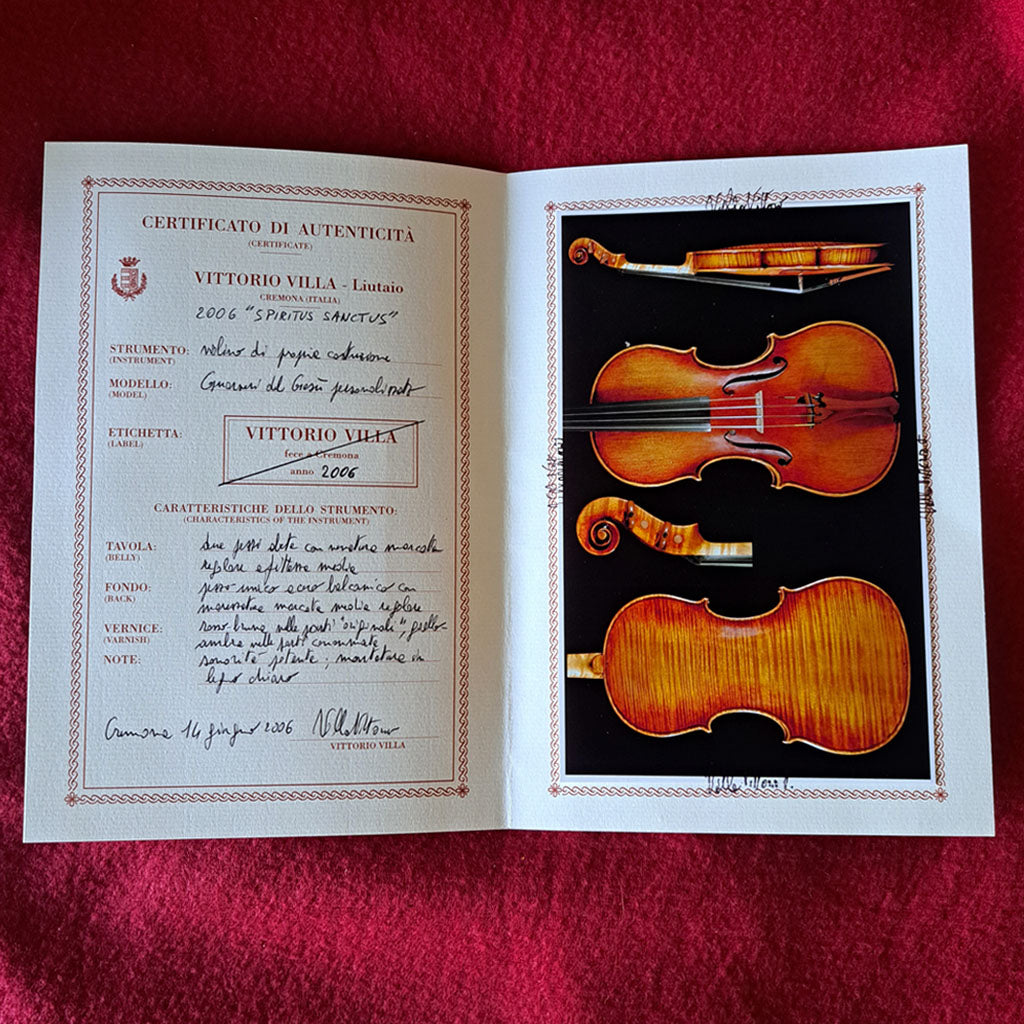 CERTIFICATO DI AUTENTICITÀ
(CERTIFICATE)
VITTORIO VILLA - Liutaio
CREMONA (ITALIA)
2006 "SPIRITUS SANCTUS"
STRUMENTO: violino di propria costruzione
(INSTRUMENT)
MODELLO: Guarneri del Gesù personalizzato
(MODEL)
ETICHETTA:
(LABEL)
VITTORIO VILLA
fece a Cremona
anno 2006
CARATTERISTICHE DELLO STRUMENTO:
(CHARACTERISTICS OF THE INSTRUMENT)
TAVOLA: due pezzi abete con venatura marcata
(BELLY) regolare e fitezza media
FONDO: pezzo unico acero balcanico con
(BACK) marezzatura marcata media regolare
VERNICE: rosso bruno nelle parti "originali", giallo-
(VARNISH) ambra nelle parti consumate
NOTE: sonorità potente; montatura in
legno chiaro
Cremona 14 giugno 2006 Villa Vittorio
VITTORIO VILLA
Villa Vittorio
Villa Vittorio